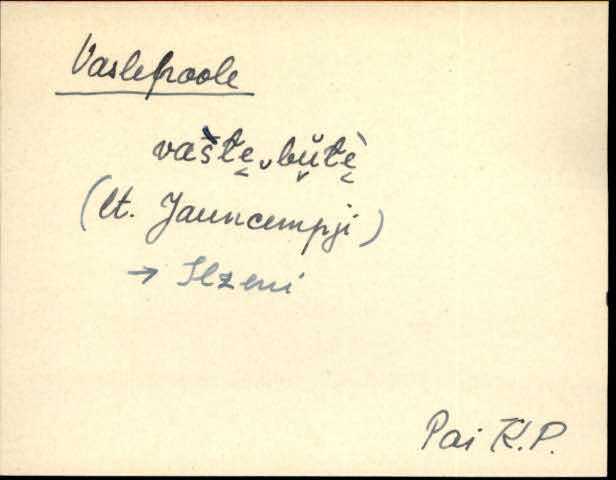 Vastefroole
vašte͔ᴗbŭtè͔
(lt. Jauncempji)
→ Ilzeni
Pai K.P.